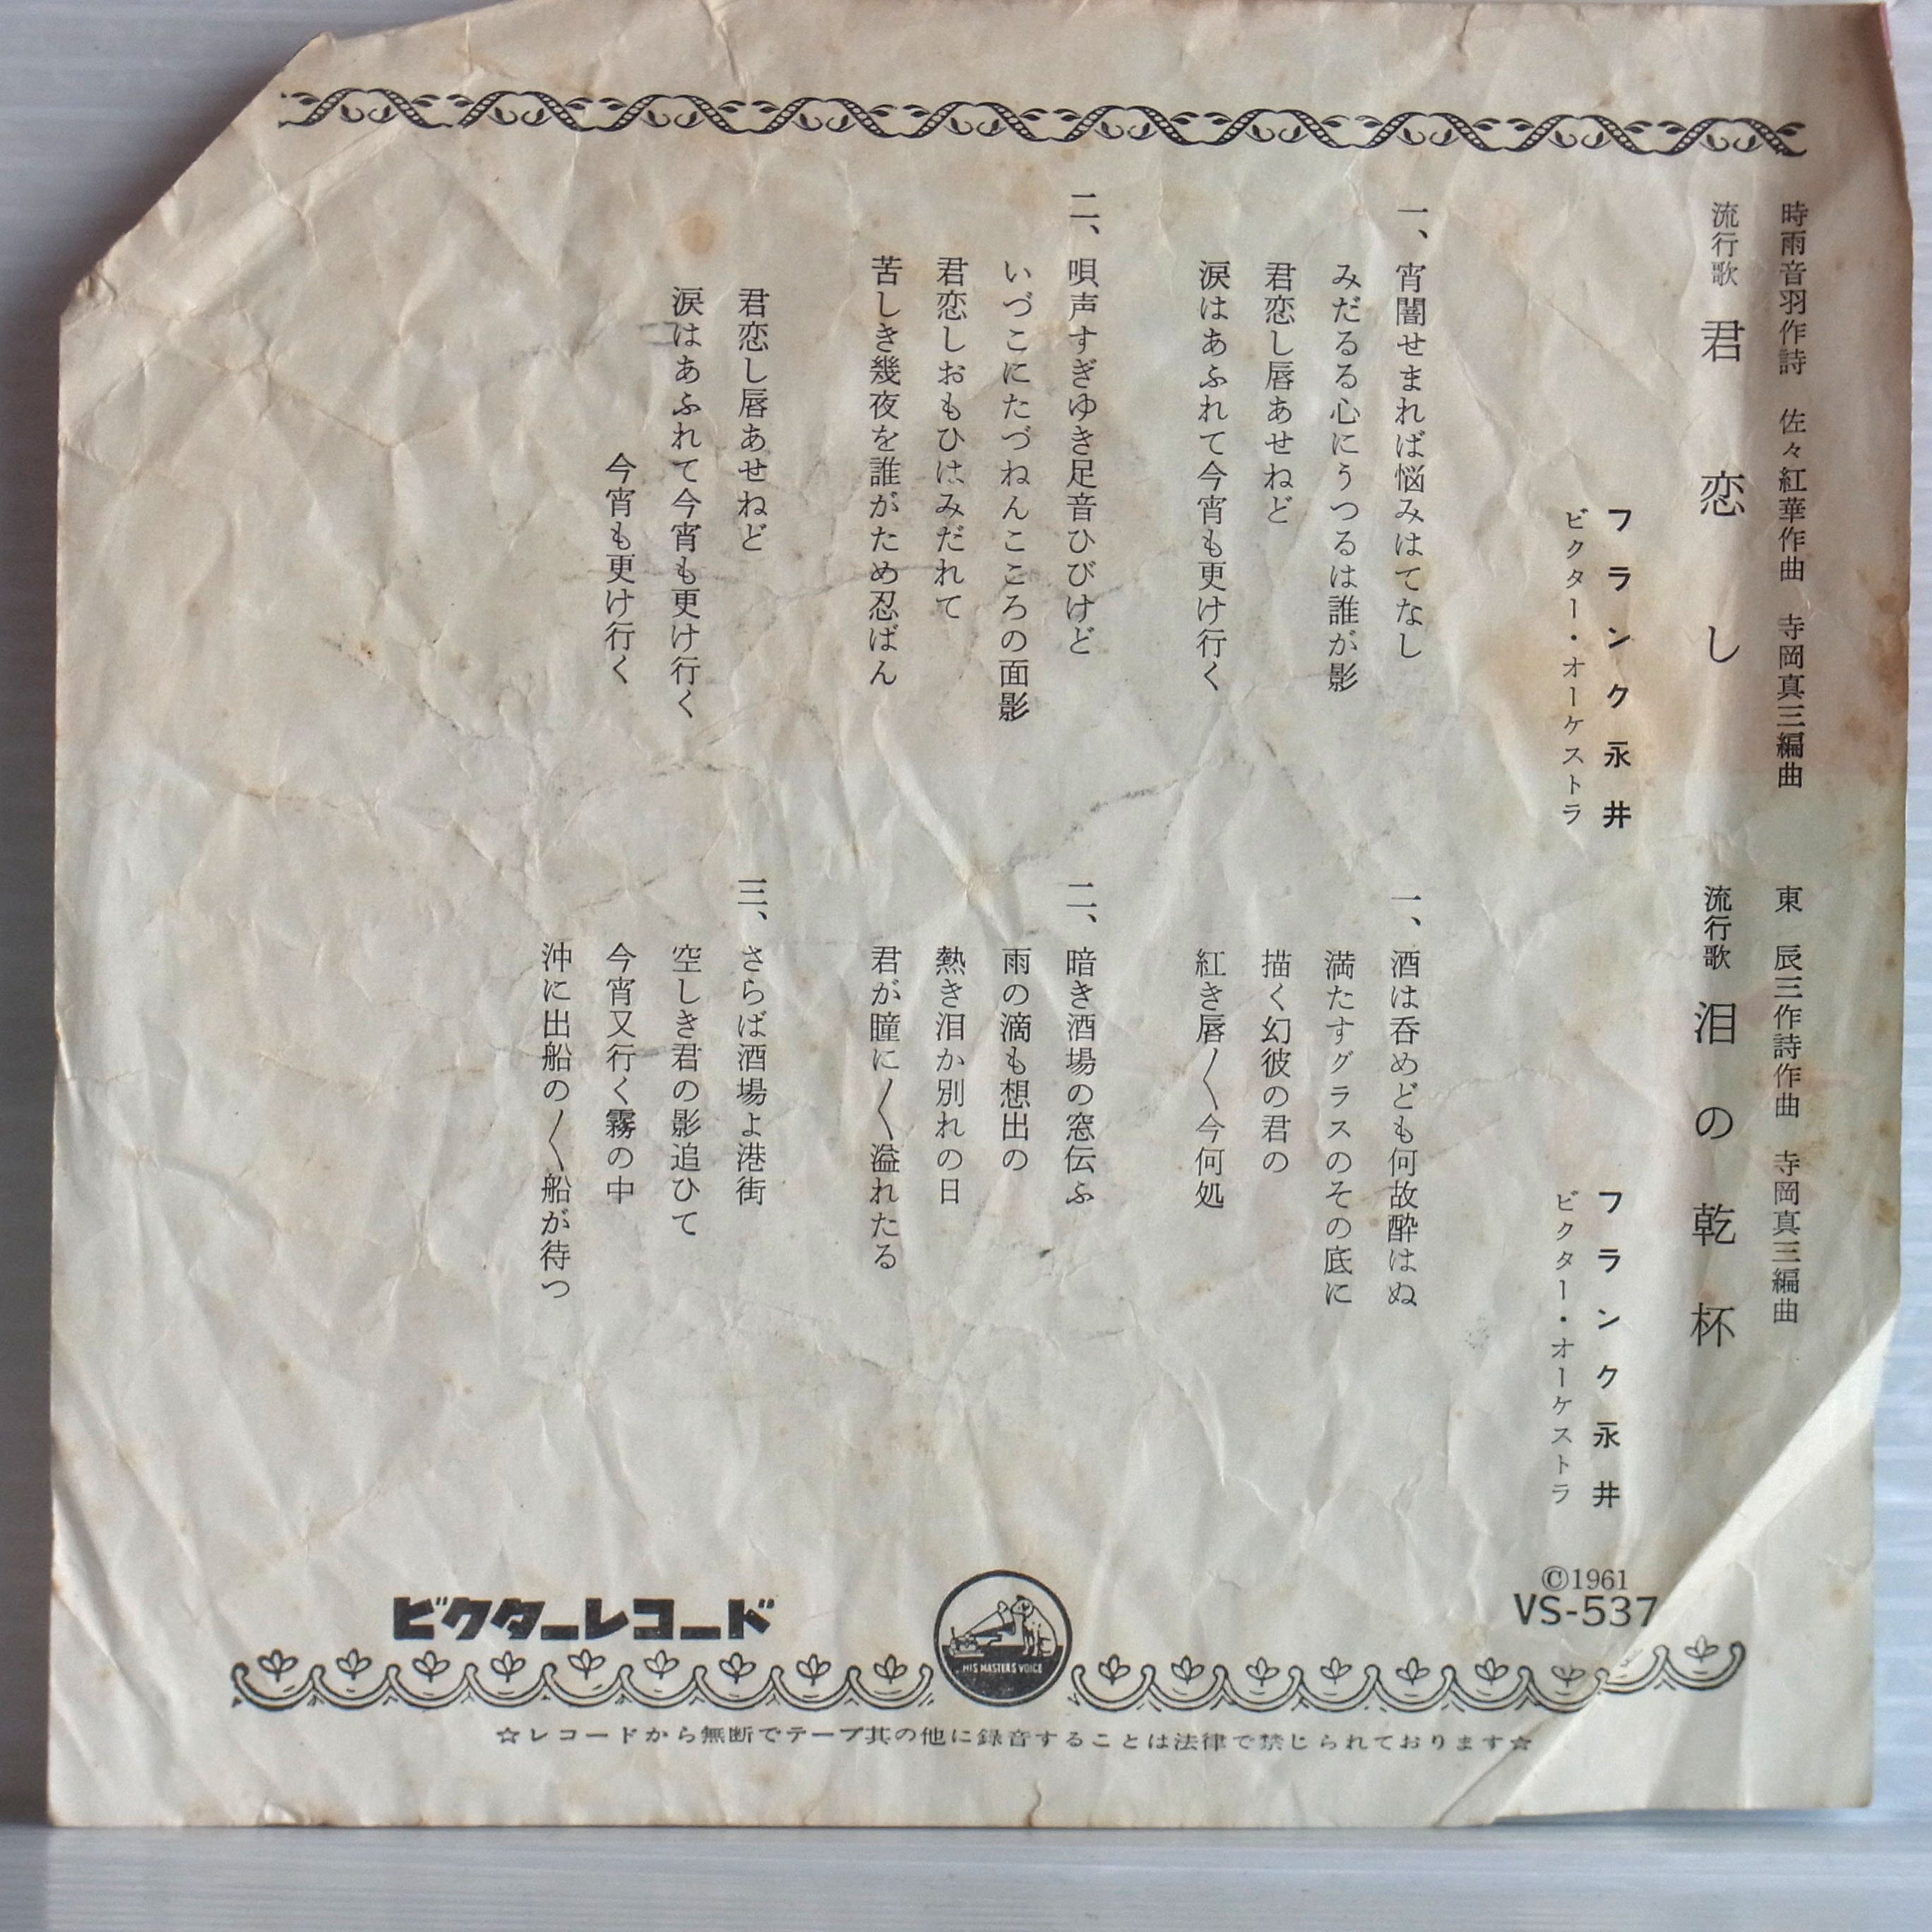 時雨音羽作詩　佐々紅華作曲　寺岡真三編曲
流行歌　君恋し
フランク永井
ビクター・オーケストラ
一、宵闇せまれば悩みはてなし
みだるる心にうつるは誰が影
君恋し唇あせねど
涙はあふれて今宵も更け行く
二、唄声すぎゆき足音ひびけど
いづこにたづねんこころの面影
君恋しおもひはみだれて
苦しき幾夜を誰がため忍ばん
君恋し唇あせねど
涙はあふれて今宵も更け行く
今宵も更け行く
東　辰三作詩作曲　寺岡真三編曲
流行歌　泪の乾杯
フランク永井
ビクター・オーケストラ
一、酒は呑めども何故酔はぬ
満たすグラスのその底に
描く幻彼の君の
紅き唇〳〵今何処
二、暗き酒場の窓伝ふ
雨の滴も想出の
熱き泪か別れの日
君が瞳に〳〵溢れたる
三、さらば酒場よ港街
空しき君の影追ひて
今宵又行く霧の中
沖に出船の〳〵船が待つ
©1961
VS-537
ビクターレコード
HIS MASTER'S VOICE
☆レコードから無断でテープ其の他に録音することは法律で禁じられております☆